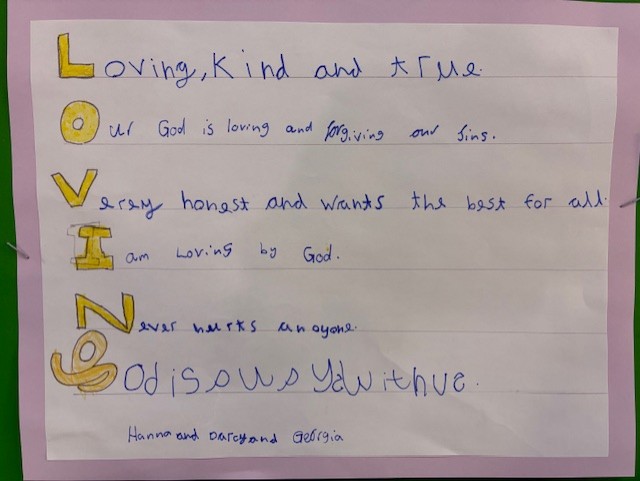 Loving, Kind and true.
Our God is loving and forgiving our sins.
Verey honest and wants the best for all.
I am Loving by God.
Never hurts anoyone.
God is
Hanna and Darcy and Georgia